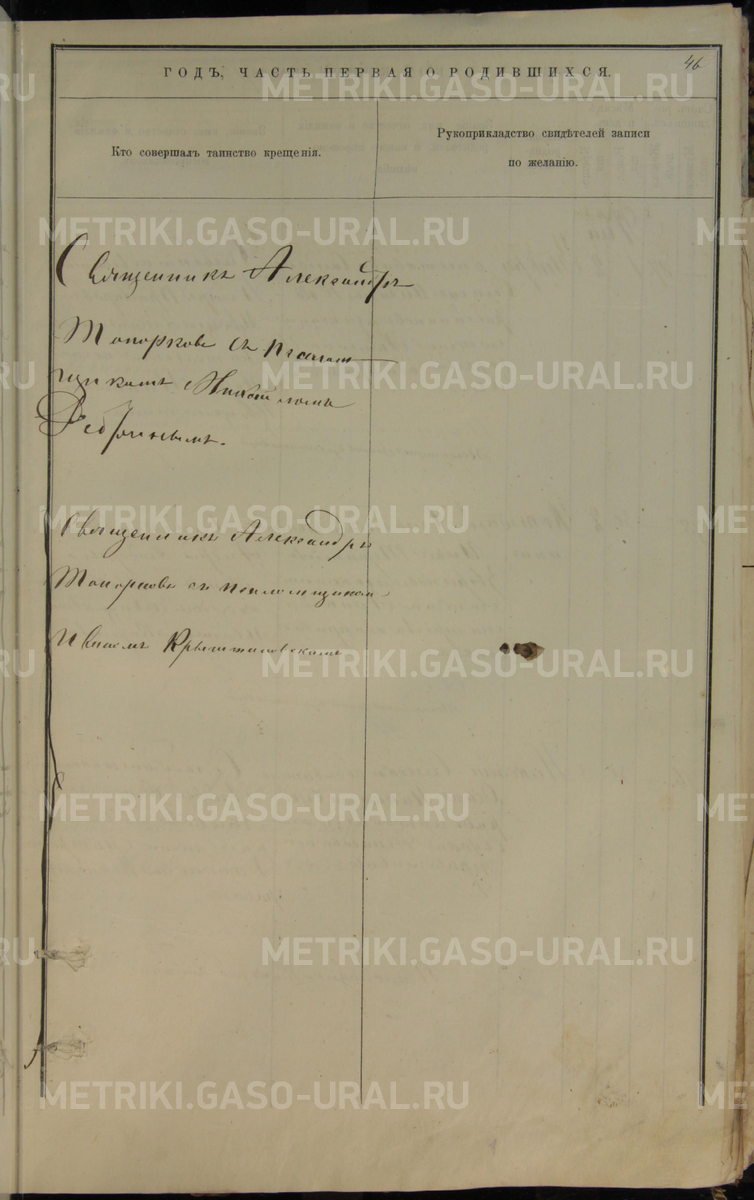 46
ГОДЪ, ЧАСТЬ ПЕРВАЯ О РОДИВШИХСЯ.
Кто совершалъ таинство крещенія.
Рукоприкладство свидѣтелей записи
по желанію.
Священникъ Александръ
Топорковъ съ Псалом
щикомъ
Священникъ Александръ
Топорковъ съ псаломщикомъ
Иваномъ
METRIKI.GASO-URAL.RU